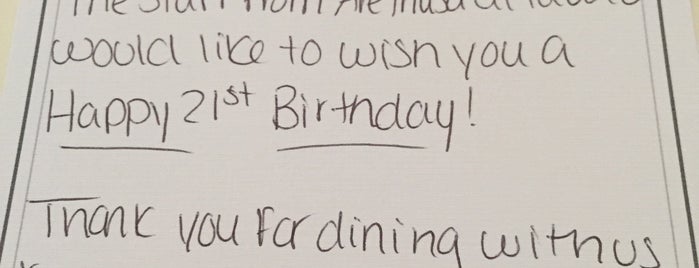 The Staff from
would like to wish you a
Happy 21st Birthday!
Thank you for dining with us